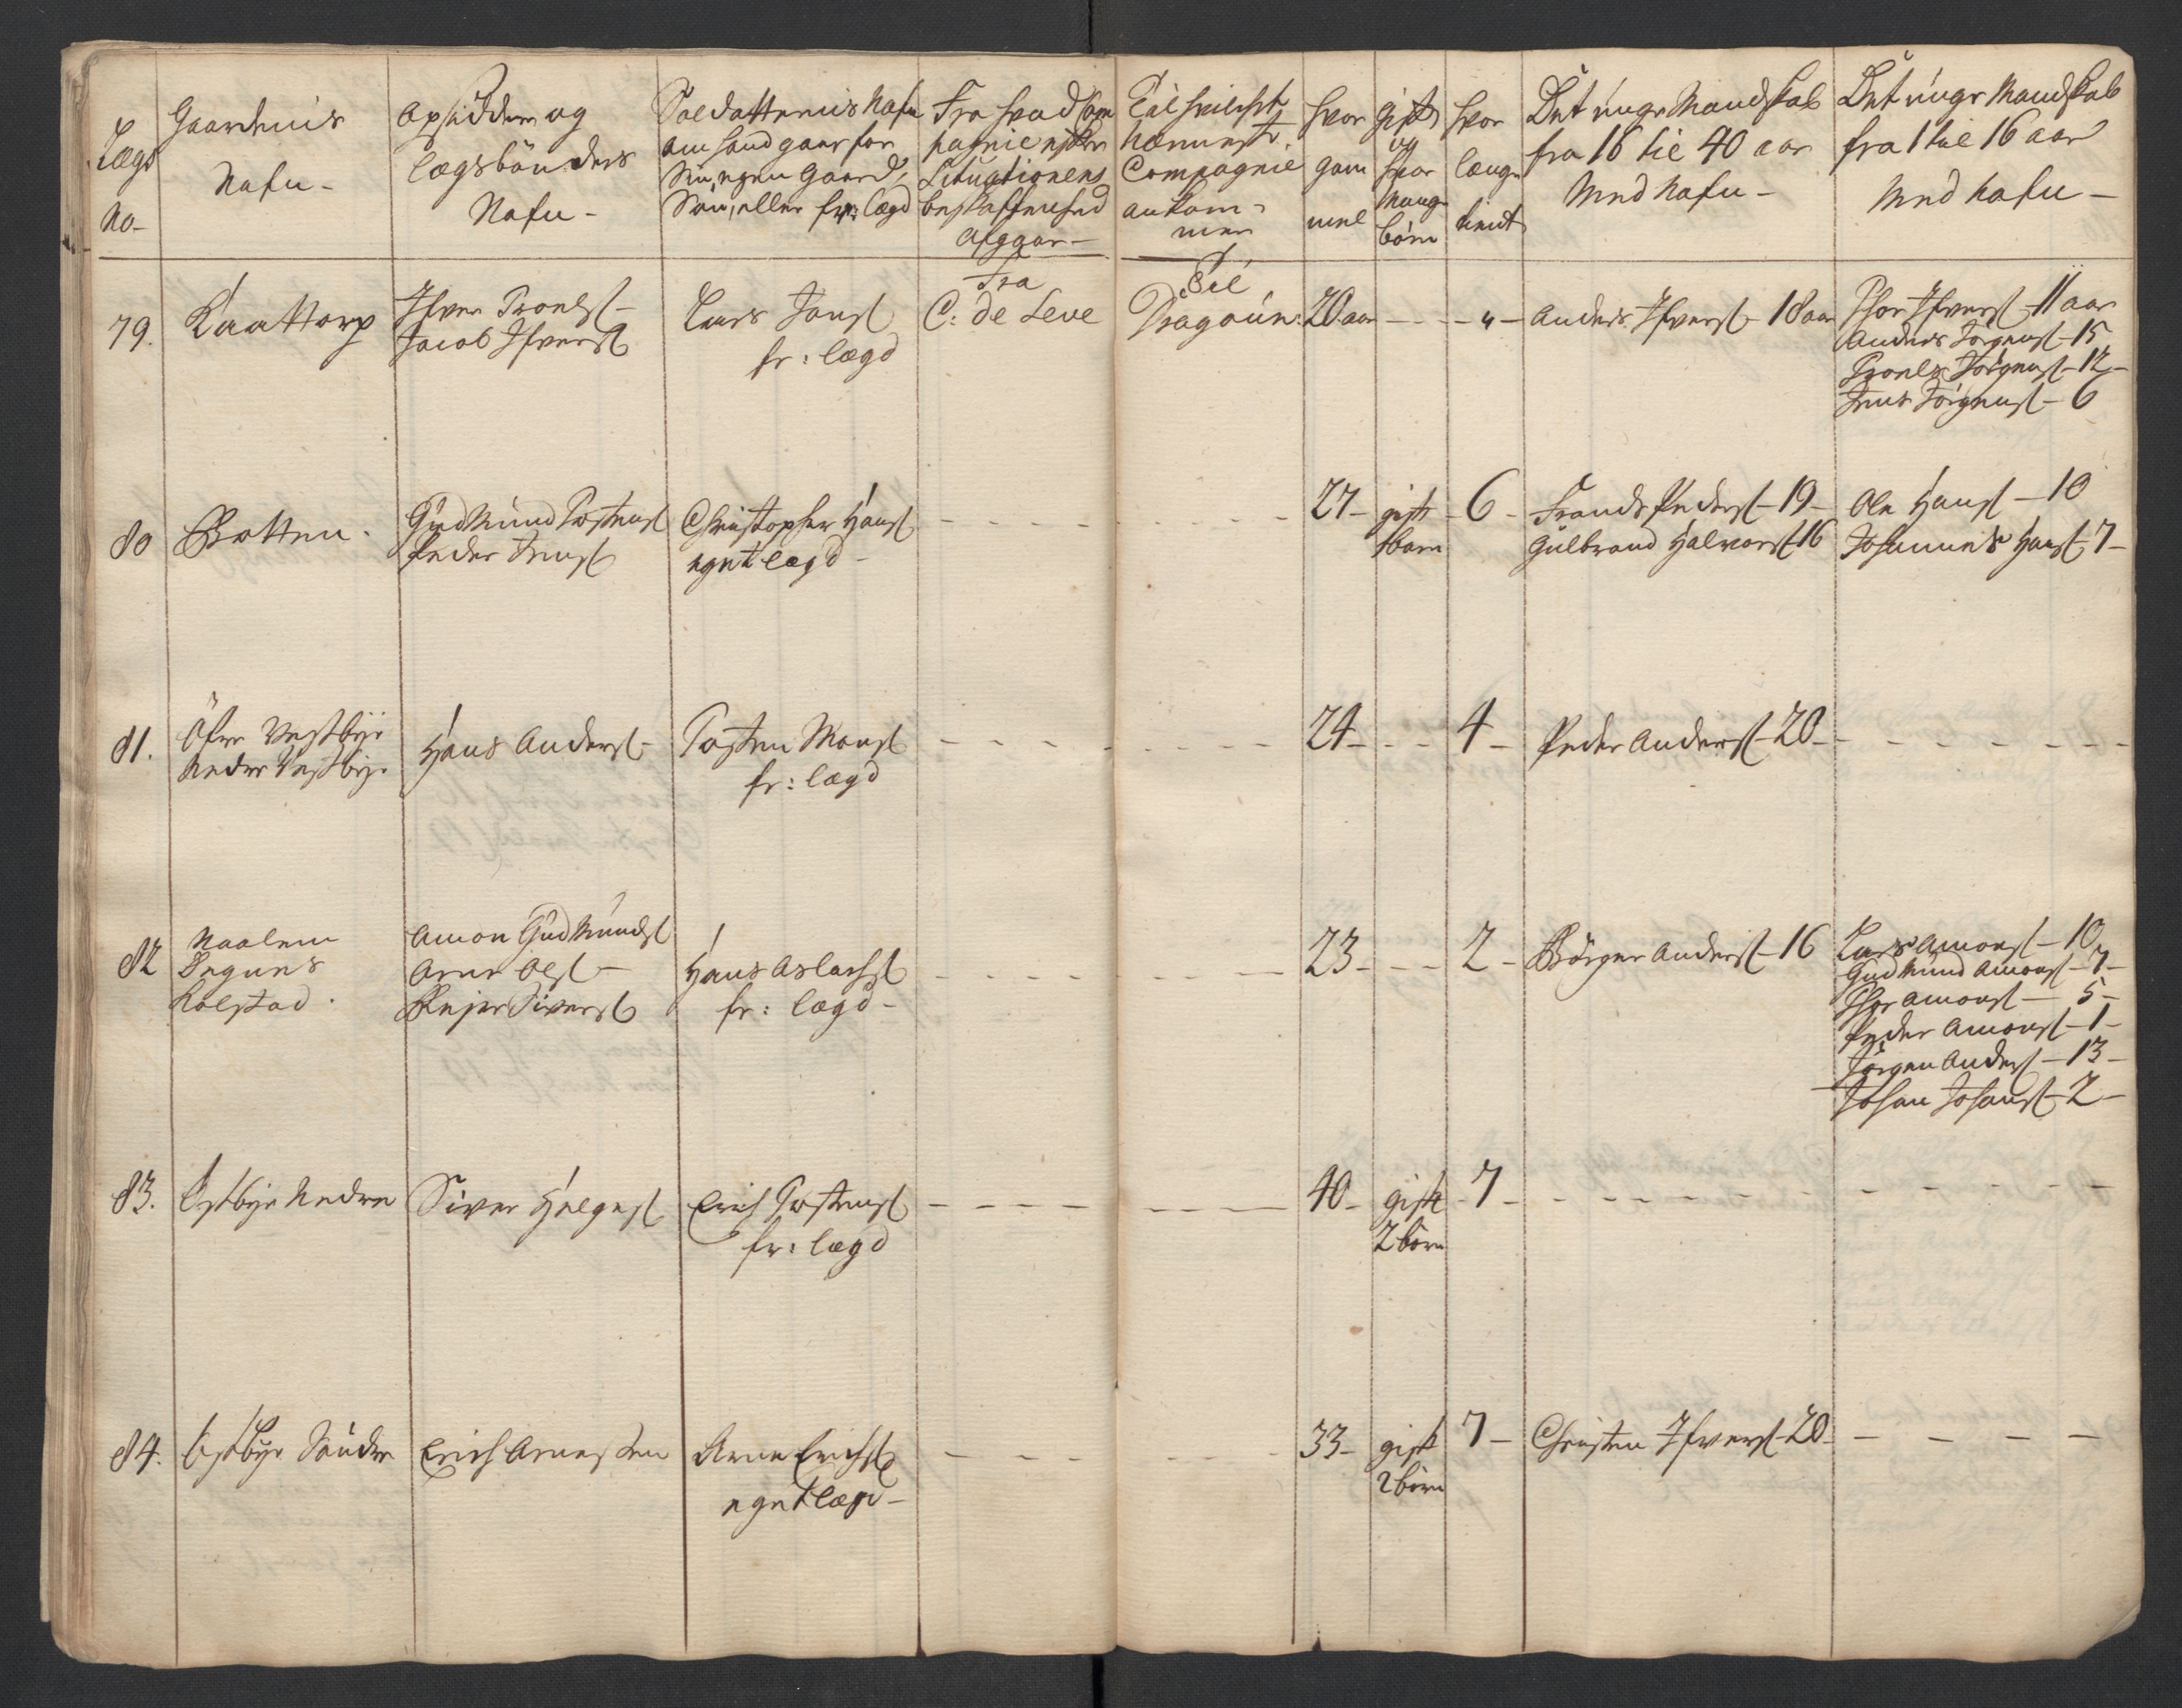 Lægs
No-
Gaardenis
Nafn-
Opsidder og
lægsbönders
Nafn-
Soldatternis Nafn
om hand gaar for
sin egen Gaard,
Sön, eller fr: lægd
Fra hvad Com
pagnie efter
Situationens
beskaffenhed
afgaar-
Til hvilchet
Nærmeste
Compagnie
ankom-
mer
hvor
gam
mel
gift
og
hvor
mang
börn
hvor
længe
tient
Det unge Mandskab
fra 16 til 40 aar
Med Nafn-
Det unge Mandskab
fra 1 til 16 aar
Med Nafn-
79.
Kaattorp
Ifver Troels-
Jacob Ifvers
Lars Jons
fr: lægd
Fra
C: de Seve
Til
Dragoun:
20 aar - - - „ -
Anders Ifvers- 18 aar
Thor Ifvers- 11 aar
Anders Jörgens- 15
Troels Jörgens- 12-
Jens Jörgens- 6
80
Botten.
Gudmund Tostens
Peder Jens
Christopher Hans
eget lægd-
27-
gift
1 barn
6-
Frands Peders- 19-
Gulbrand Halvors- 16
Ole Hans- 10
Johannes Hans- 7-
81.
Öfre Vestbye
Nedre Vestbye
Hans Anders-
Tosten Mons
fr: lægd
24- - - 4-
Peder Anders- 20-
82
Naalem
Kolstad.
Amon Gudmunds
Arne Ols-
Rejer Sivers
Hans Aslachs
fr: lægd-
23- - - 2-
Börger Anders- 16
Lars Amons- 10
Gudmund Amons- 7-
Thor Amons- 5-
Peder Amons- 1-
Jörgen Anders- 13-
Johan Johans- 2-
83.
Östbye Nedre
Siver Helges
Erich Tostens
fr: lægd
40-
gift
2 börn
7-
84.
Östbye Söndre
Erich Arnesten
Arne Erichs
eget lægd-
33-
gift
2 börn
7-
Christen Ifvers- 20-